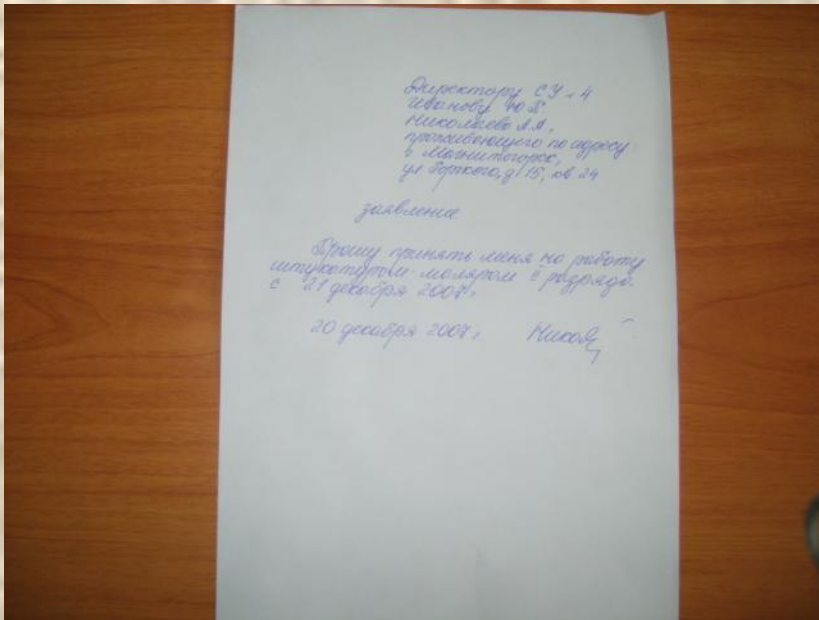 Директору СУ-4
Иванову Ю.А.
Николаева А.А.,
проживающего по адресу:
г. Магнитогорск,
ул. Горького, д. 15, кв. 24
заявление.
Прошу принять меня на работу
штукатуром-маляром II разряда
с 21 декабря 2007 г.
20 декабря 2007 г.